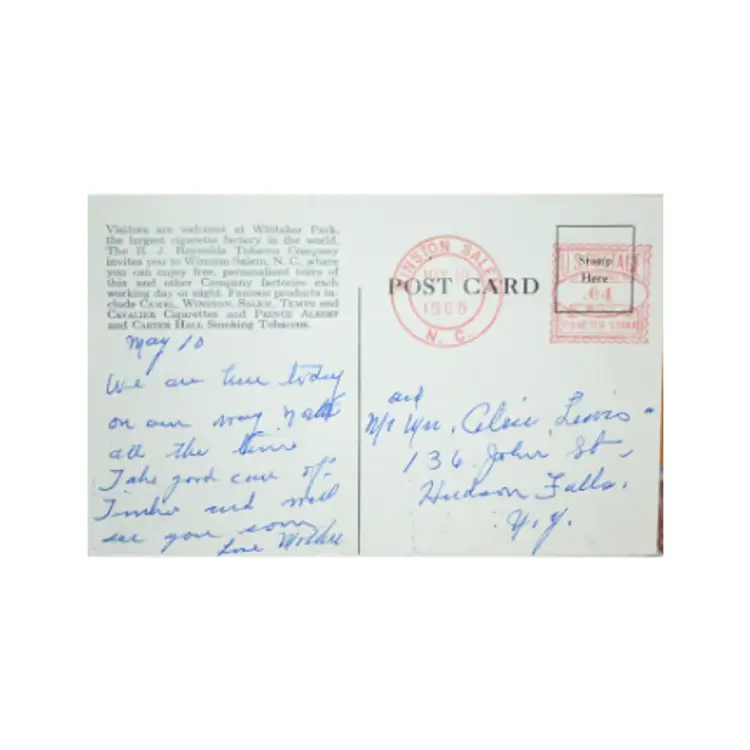 Visitors are welcome at Whitaker Park,
the largest cigarette factory in the world.
The R. J. Reynolds Tobacco Company
invites you to Winston-Salem, N. C. where
you can enjoy free, personalized tours of
this and other Company factories each
working day or night. Famous products in-
clude CAMEL, WINSTON, SALEM, TEMPO and
CAVALIER Cigarettes and PRINCE ALBERT
and CARTER HALL Smoking Tobaccos.
May 10
We are here today
on our way North
all the time
Take good care of
and will
see you soon
Love Mother
WINSTON SALEM
MAY 10
N. C.
POST CARD
Stamp
Here
.04
and
Mr Mrs. Lewis
136 John St.
Hudson Falls.
N.Y.